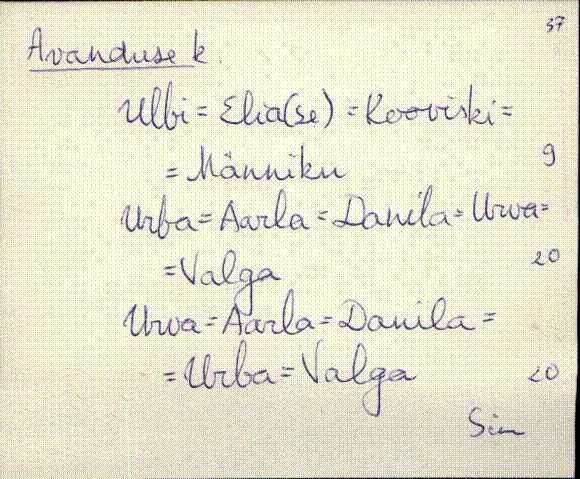 37
Avanduse k.
Ulbi = Elia(se) = Kooviski =
= Männiku 9
Urba = Aarla = Danila = Urva =
= Valga 20
Urva = Aarla = Danila =
= Urba = Valga 20
Sim